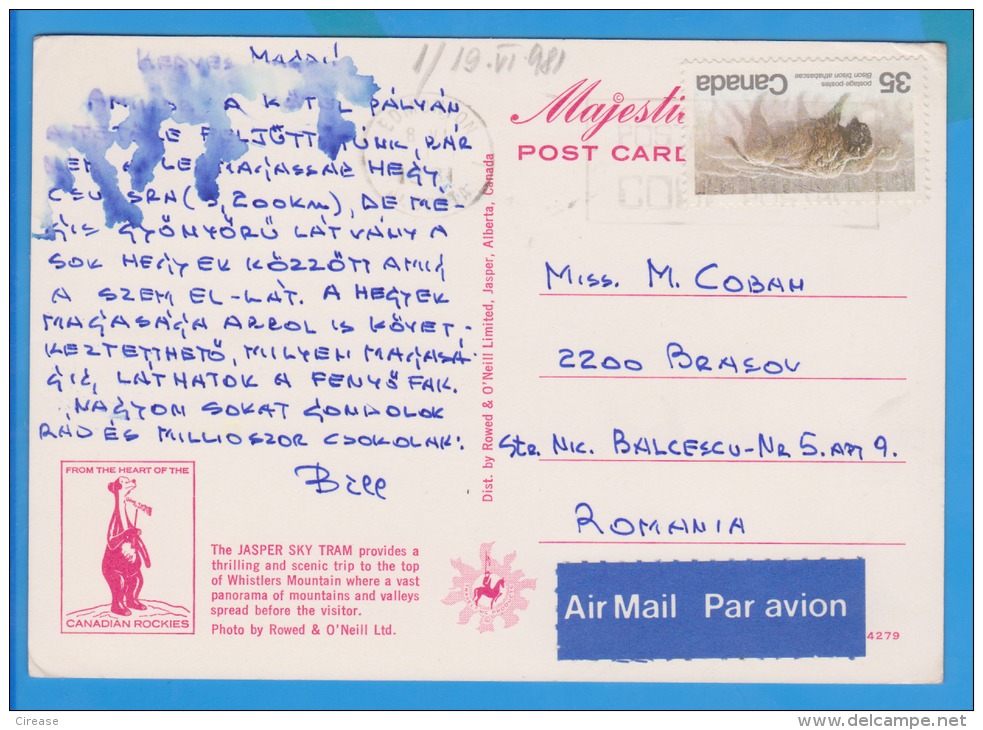 Kedves Madái
1/19·VI 981
A KÖTEL PÁLYÁN
FELJÖTTÜNK, BÁR
LEGMAGASSAB HEGY
CSUCSRA (3,200KM), DE MÉ-
GIS GYÖNYÖRŰ LÁTVÁNY A
SOK HEGYEK KÖZZÖTT AMIG
A SZEM EL-LÁT. A HEGYEK
MAGASÁGA ARROL IS KÖVET-
KEZTETTHETŐ, MILYEN MAGASÁ-
GIG, LÁTHATOK A FENYŐ FÁK.
NAGYOM SOKAT GONDOLOK
RÁD ÉS MILLIOSZOR CSOKOLAK:
Bill
FROM THE HEART OF THE
CANADIAN ROCKIES
The JASPER SKY TRAM provides a
thrilling and scenic trip to the top
of Whistlers Mountain where a vast
panorama of mountains and valleys
spread before the visitor.
Photo by Rowed & O'Neill Ltd.
Dist. by Rowed & O'Neill Limited, Jasper, Alberta, Canada
©
Majesti
POST CARD
EDMONTON
35
Canada
postage-postes
Bison bison athabascae
MISS. M. COBAN
2200 BRASOV
STR. NIC. BALCESCU-NR 5. AP 9.
ROMANIA
Air Mail Par avion
4279
Cirease
www.delcampe.net